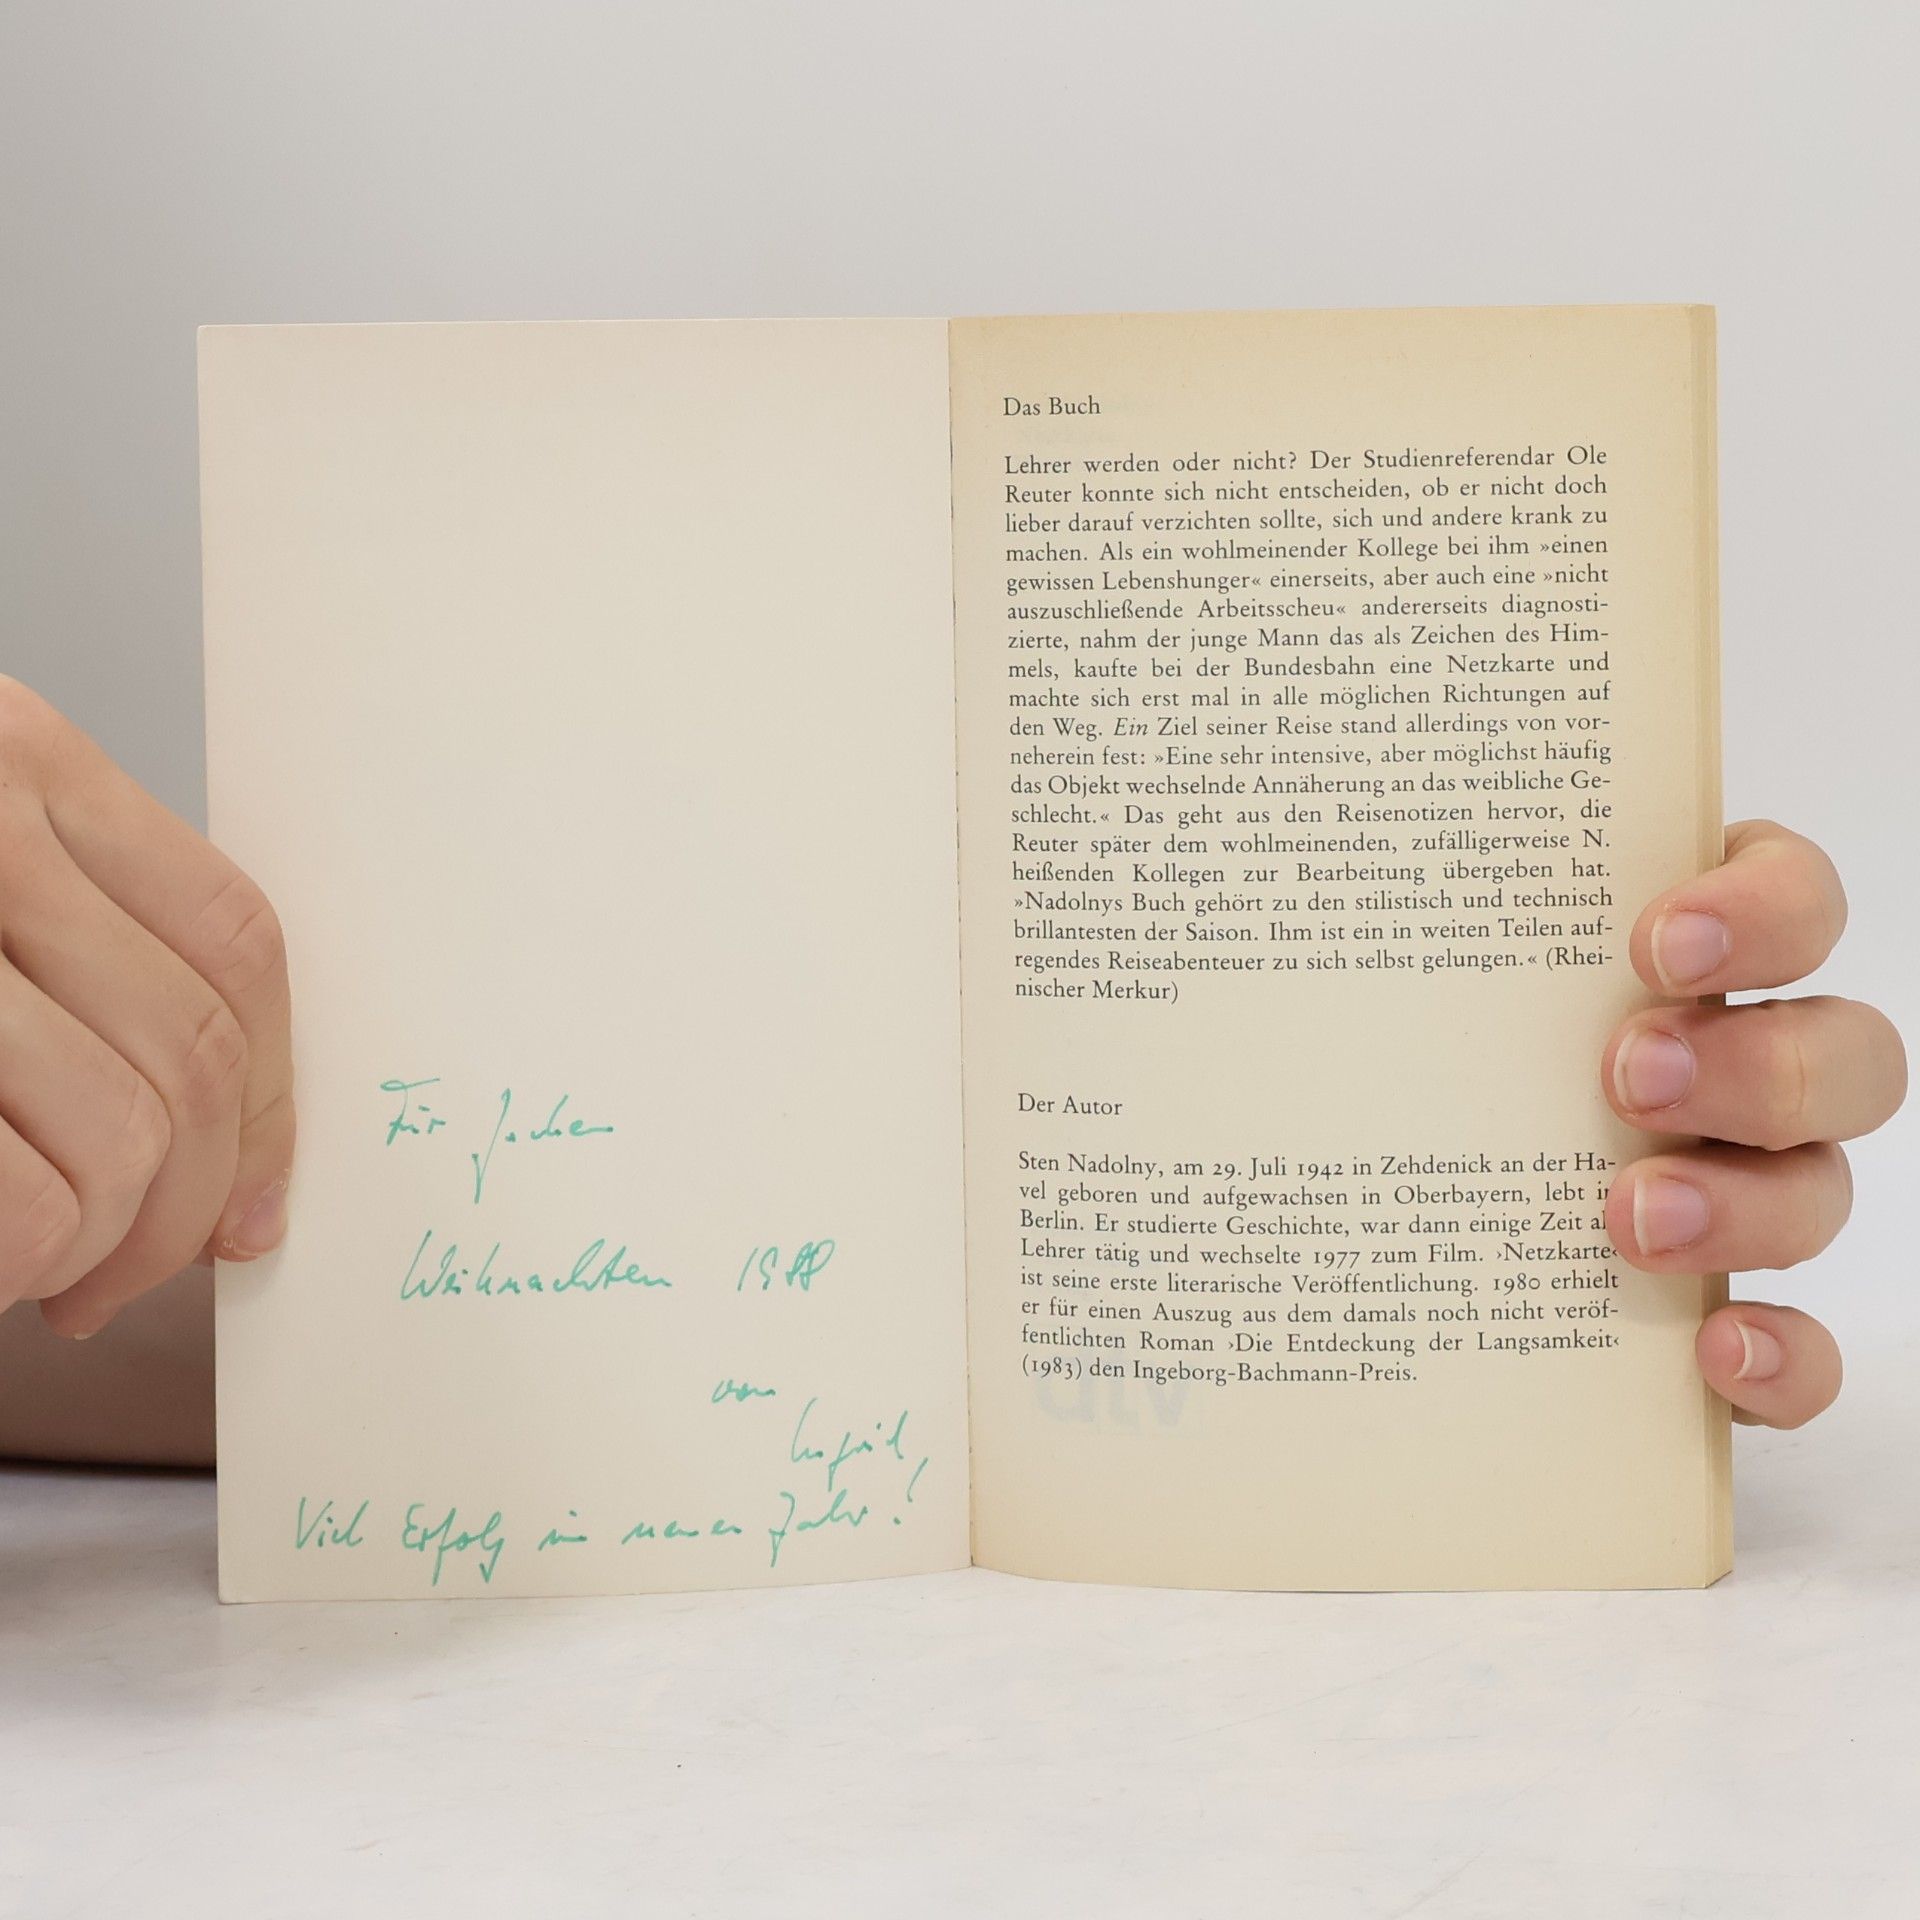 Für Jochen
Weihnachten 1988
von
Ingrid,
Viel Erfolg im neuen Jahr!
Das Buch
Lehrer werden oder nicht? Der Studienreferendar Ole
Reuter konnte sich nicht entscheiden, ob er nicht doch
lieber darauf verzichten sollte, sich und andere krank zu
machen. Als ein wohlmeinender Kollege bei ihm »einen
gewissen Lebenshunger« einerseits, aber auch eine »nicht
auszuschließende Arbeitsscheu« andererseits diagnosti-
zierte, nahm der junge Mann das als Zeichen des Him-
mels, kaufte bei der Bundesbahn eine Netzkarte und
machte sich erst mal in alle möglichen Richtungen auf
den Weg. Ein Ziel seiner Reise stand allerdings von vor-
neherein fest: »Eine sehr intensive, aber möglichst häufig
das Objekt wechselnde Annäherung an das weibliche Ge-
schlecht.« Das geht aus den Reisenotizen hervor, die
Reuter später dem wohlmeinenden, zufälligerweise N.
heißenden Kollegen zur Bearbeitung übergeben hat.
»Nadolnys Buch gehört zu den stilistisch und technisch
brillantesten der Saison. Ihm ist ein in weiten Teilen auf-
regendes Reiseabenteuer zu sich selbst gelungen.« (Rhei-
nischer Merkur)
Der Autor
Sten Nadolny, am 29. Juli 1942 in Zehdenick an der Ha-
vel geboren und aufgewachsen in Oberbayern, lebt in
Berlin. Er studierte Geschichte, war dann einige Zeit al
Lehrer tätig und wechselte 1977 zum Film. ›Netzkarte‹
ist seine erste literarische Veröffentlichung. 1980 erhielt
er für einen Auszug aus dem damals noch nicht veröf-
fentlichten Roman ›Die Entdeckung der Langsamkeit‹
(1983) den Ingeborg-Bachmann-Preis.